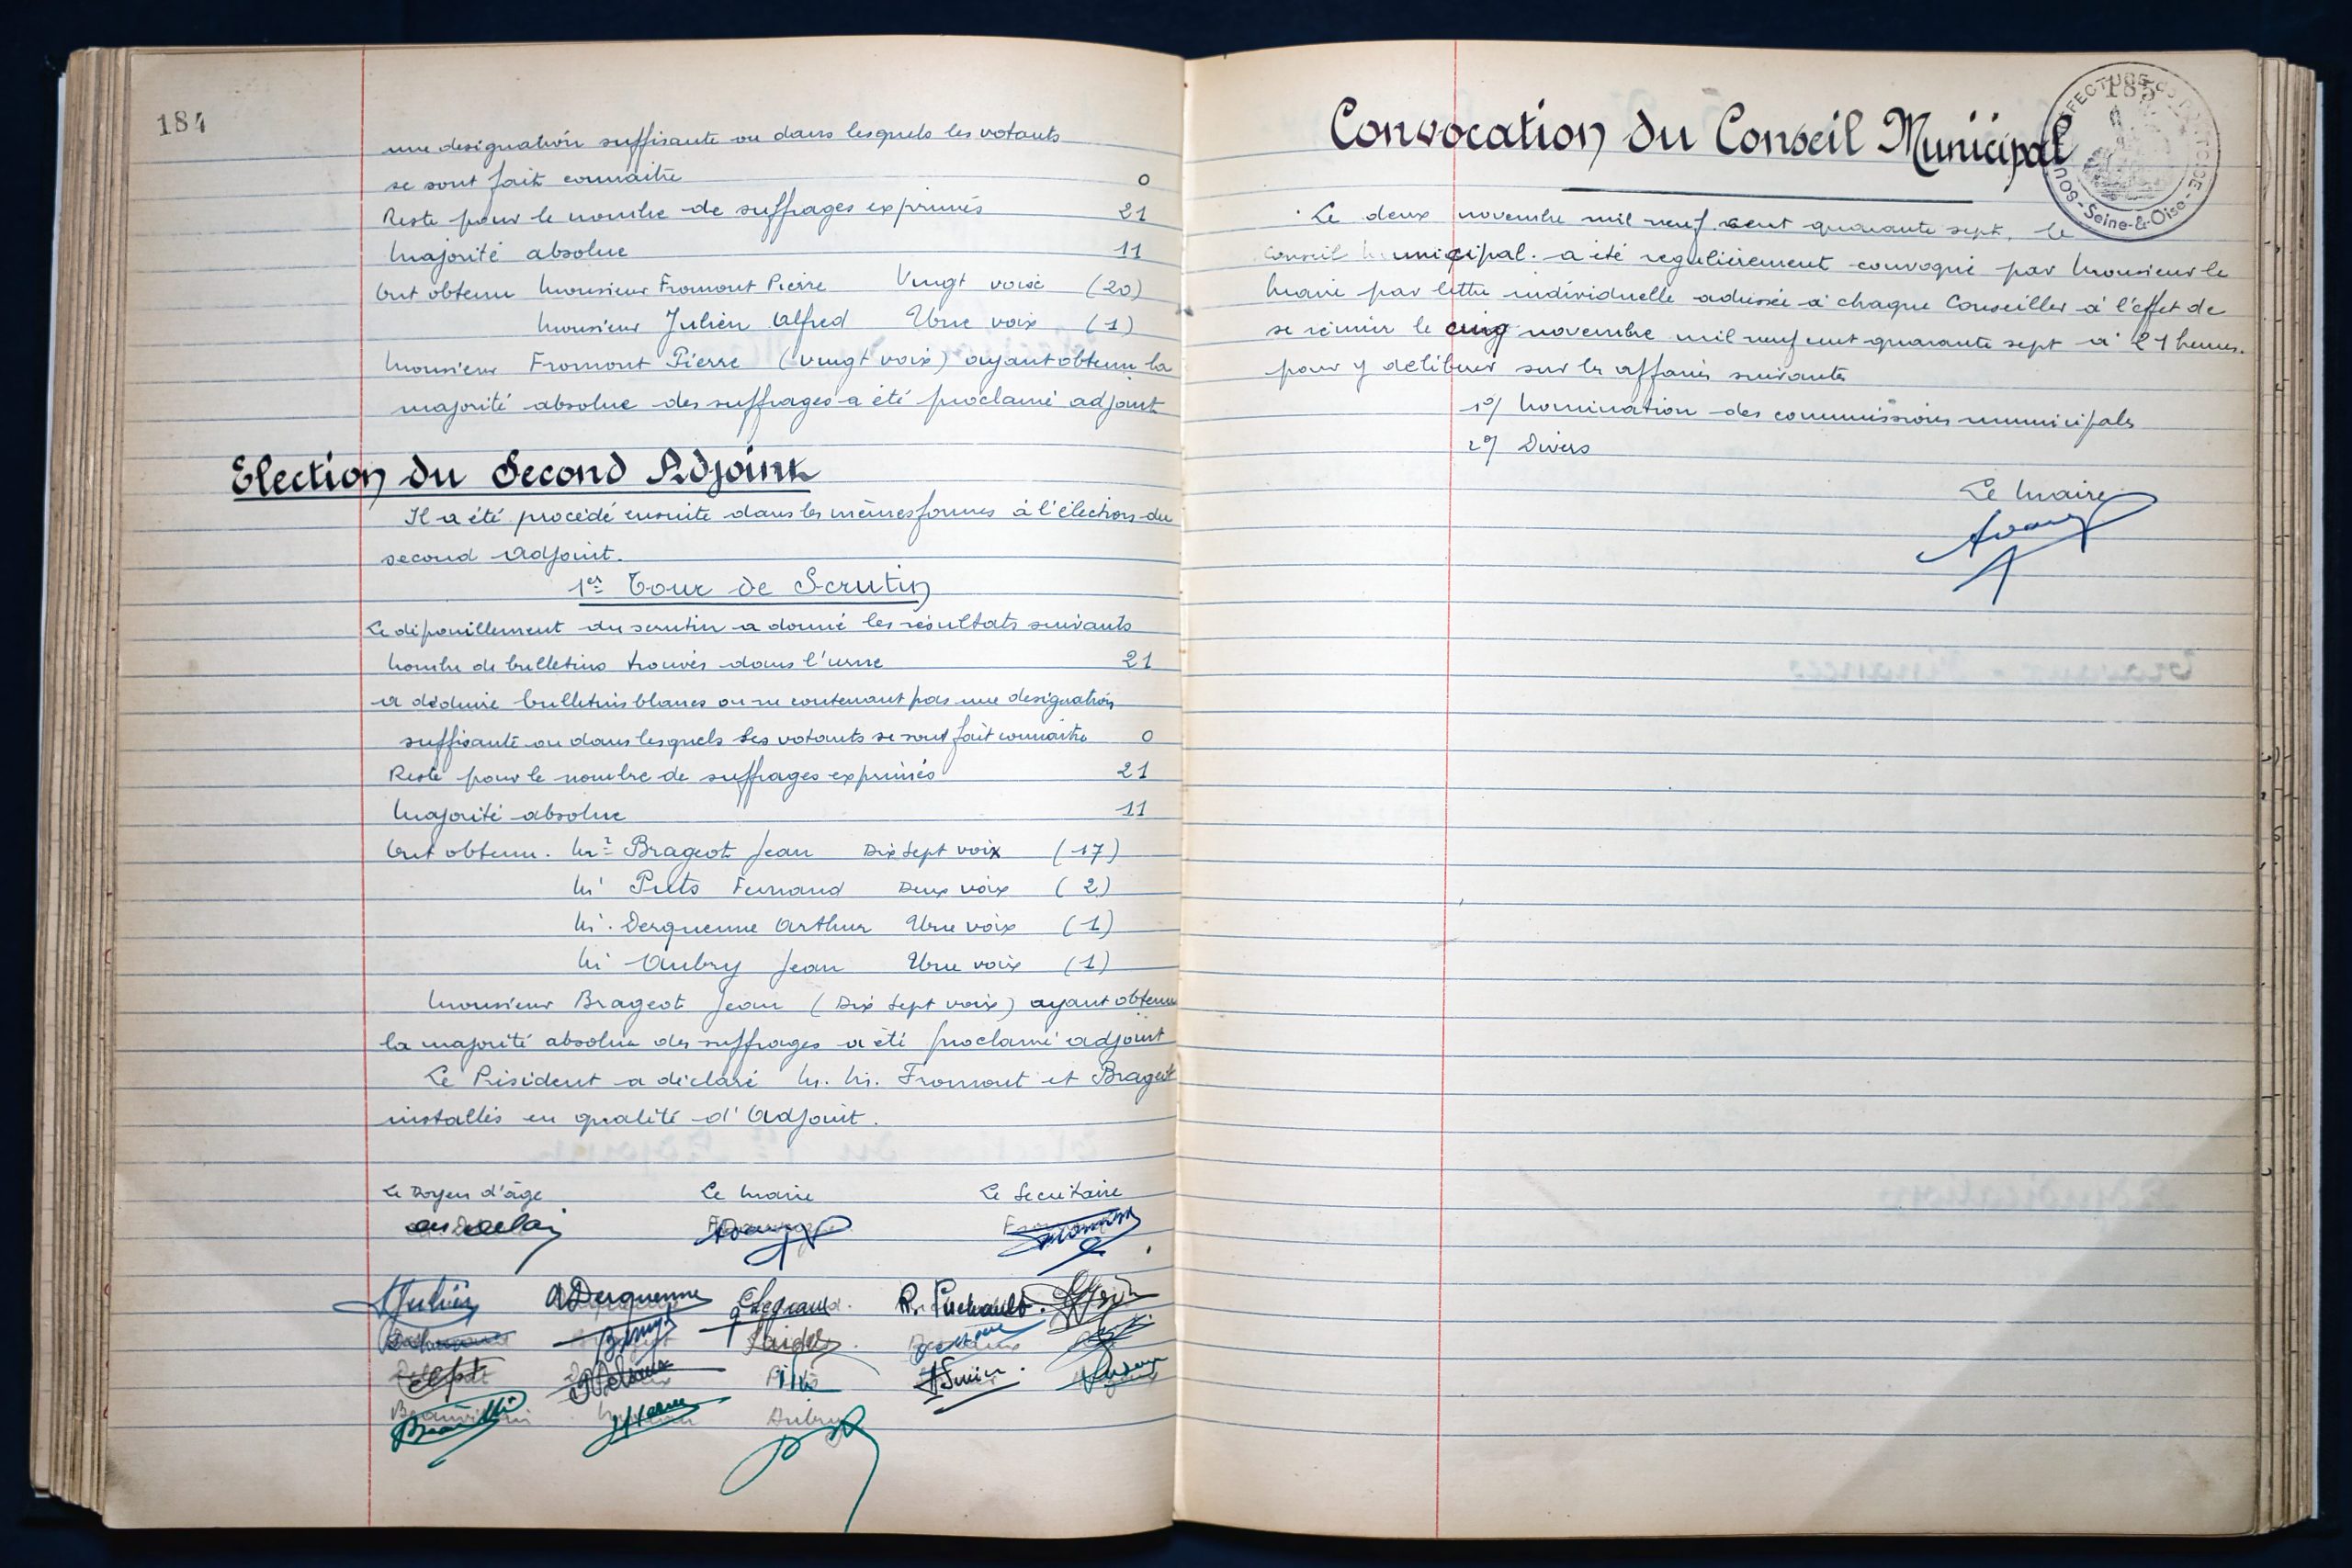 184
une designation suffisante ou dans lesquels les votants
se sont fait connaître 0
Reste pour le nombre de suffrages exprimés 21
Majorité absolue 11
Ont obtenu Monsieur Fromont Pierre Vingt voix (20)
Monsieur Julien Alfred Une voix (1)
Monsieur Fromont Pierre (vingt voix) ayant obtenu la
majorité absolue des suffrages a été proclamé adjoint
Election du Second Adjoint
Il a été procédé ensuite dans les mêmes formes à l'élection du
second Adjoint.
1er Tour de Scrutin
Le dépouillement du scrutin a donné les résultats suivants
Nombre de bulletins trouvés dans l'urne 21
a déduire bulletins blancs ou ne contenant pas une designation
suffisante ou dans lesquels les votants se sont fait connaître 0
Reste pour le nombre de suffrages exprimés 21
Majorité absolue 11
Ont obtenu. Mr Brageot Jean Dix Sept voix (17)
Mr Puts Fernand Deux voix (2)
Mr. Derquenne Arthur Une voix (1)
Mr Aubry Jean Une voix (1)
Monsieur Brageot Jean (Dix Sept voix) ayant obtenu
la majorité absolue des suffrages a été proclamé adjoint
Le Président a déclaré M. M. Fromont et Brageot
installés en qualité d'Adjoint.
Le Doyen d'âge Le Maire Le Secrétaire
Julien A Derquenne Legrand. R. Puchault.
Aubry
185
SOUS-PREFECTURE de PONTOISE - Seine-&-Oise -
Convocation du Conseil Municipal
Le deux novembre mil neuf cent quarante sept, le
Conseil Municipal. a été regulièrement convoqué par Monsieur le
Maire par lettre individuelle adressée à chaque Conseiller à l'effet de
se réunir le cinq novembre mil neuf cent quarante sept à 21 heures.
pour y délibérer sur les affaires suivantes
1º/ Nomination des commissions municipales
2º/ Divers
Le Maire